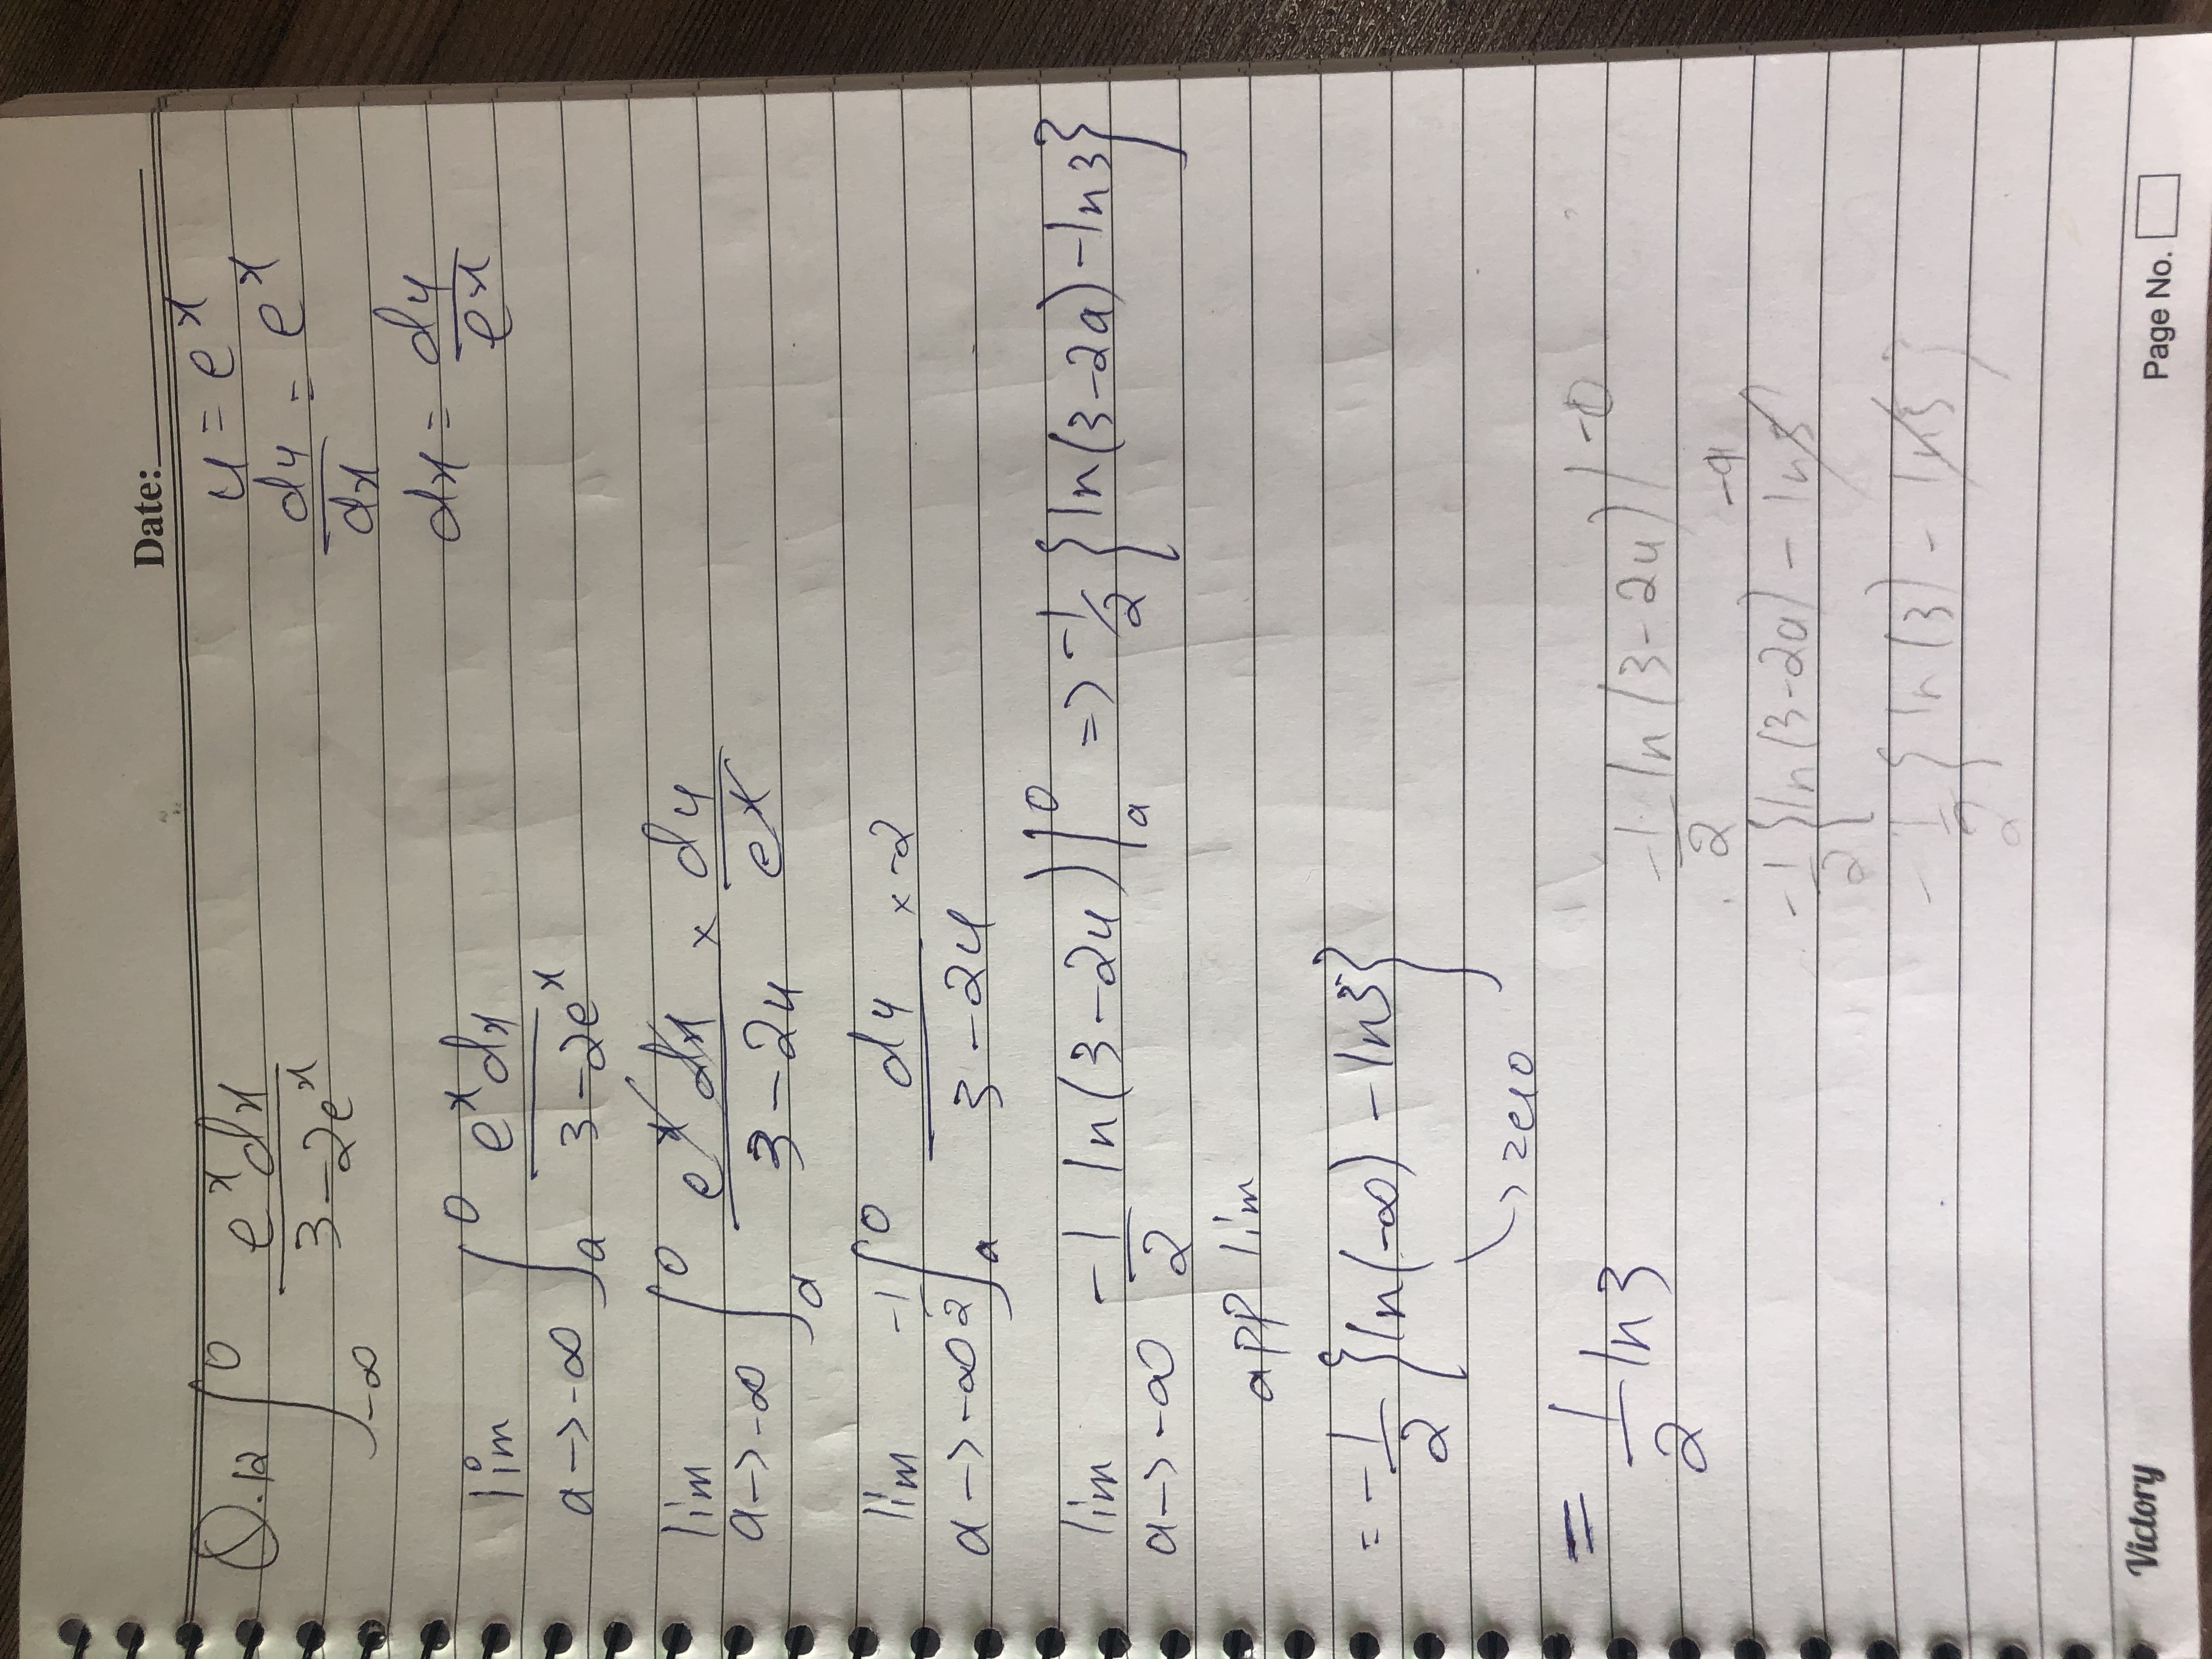 Date:
Q.12 ∫_{-∞}^{0} e^x dx / (3 - 2e^x)
u = e^x
du/dx = e^x
dx = du/e^x
lim a→-∞ ∫_{a}^{0} e^x dx / (3 - 2e^x)
lim a→-∞ ∫_{a}^{0} e^x dx / (3 - 2u) × du/e^x
lim a→-∞ -1/2 ∫_{a}^{0} du / (3 - 2u) × -2
lim a→-∞ -1/2 ln(3-2u) |_{a}^{0} => -1/2 {ln(3-2a) - ln3}
app lim
= -1/2 {ln(-∞) - ln3}
→ zero
= 1/2 ln3
-1/2 ln(3-2u) |^{-0}_{-a}
-1/2 {ln(3-2a) - ln3
-1/2 {ln(3) - ln3}
Victory
Page No.